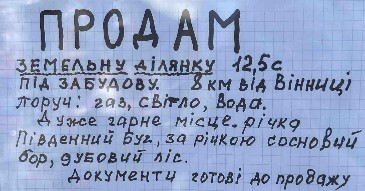 ПРОДАМ
ЗЕМЕЛЬНУ ДІЛЯНКУ 12,5с
ПІД ЗАБУДОВУ. 8 км від Вінниці
поруч: газ, світло, вода.
Дуже гарне місце. річка
Південний Буг, за річкою сосновий
бор, дубовий ліс.
Документи готові до продажу